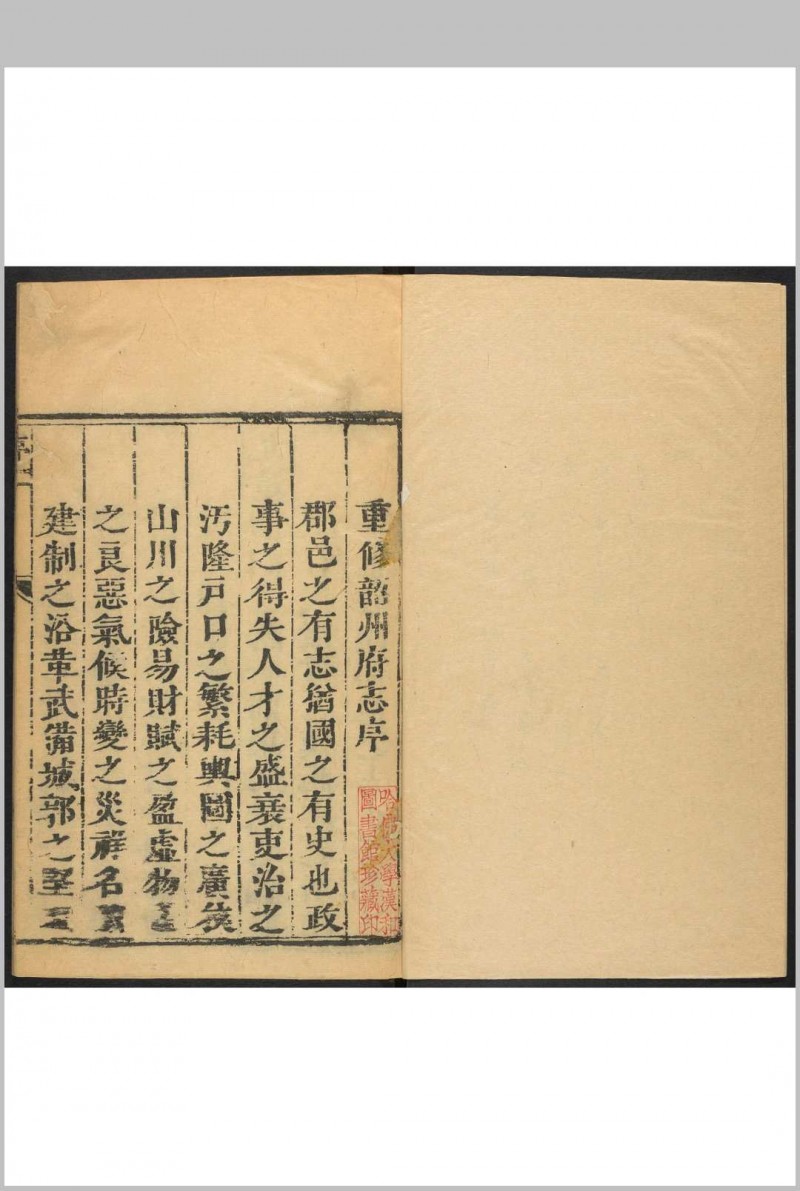 重修韶州府志序
郡邑之有志猶國之有史也政
事之得失人才之盛衰吏治之
污隆戸口之繁耗輿圖之廣
山川之險易財賦之盈虛物
之良惡氣候時變之災祥名
建制之沿革武備城郭之堅
哈佛大學漢和
圖書館珍藏印
序